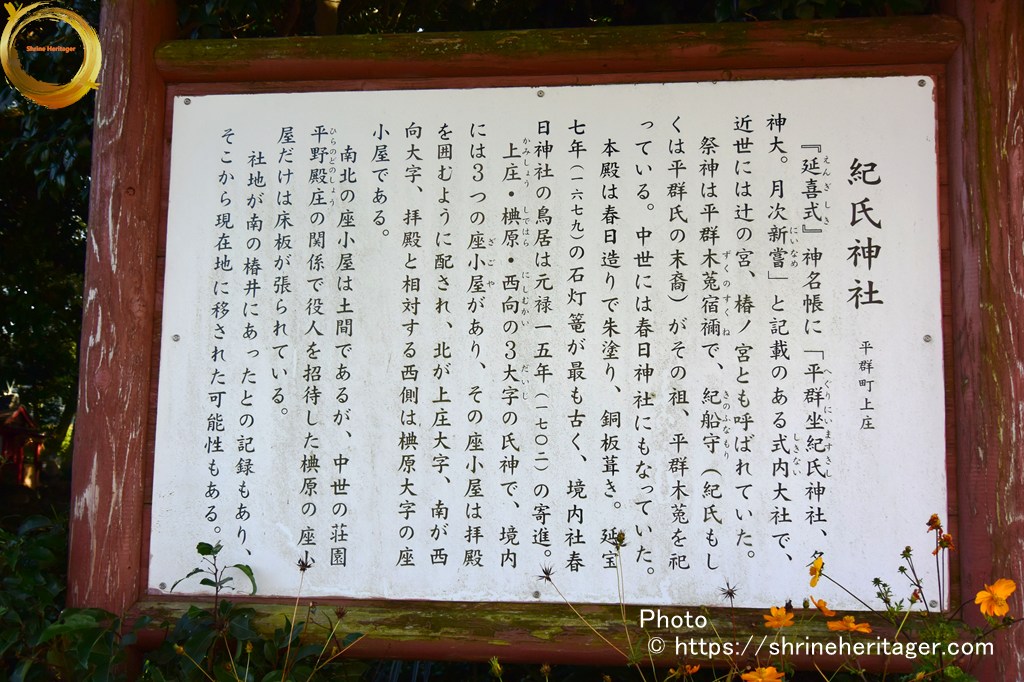 Shrine Heritager
紀氏神社
平群町上庄
『延喜式』神名帳に「平群坐紀氏神社、名
えんぎしき
へぐりにいますきし
神大。月次新嘗」と記載のある式内大社で、
にいなめ
しきない
近世には辻の宮、椿ノ宮とも呼ばれていた。
祭神は平群木菟宿禰で、紀船守(紀氏もし
ずくのすくね
きのふなもり
くは平群氏の末裔)がその祖、平群木菟を祀
っている。中世には春日神社にもなっていた。
本殿は春日造りで朱塗り、銅板葺き。延宝
七年(一六七九)の石灯篭が最も古く、境内社春
日神社の鳥居は元禄一五年(一七〇二)の寄進。
上庄・椣原・西向の3大字の氏神で、境内
かみしょう
しではら
にしむかい
だいじ
には3つの座小屋があり、その座小屋は拝殿
ざごや
を囲むように配され、北が上庄大字、南が西
向大字、拝殿と相対する西側は椣原大字の座
小屋である。
南北の座小屋は土間であるが、中世の荘園
平野殿庄の関係で役人を招待した椣原の座小
ひらのどのしょう
屋だけは床板が張られている。
社地が南の椿井にあったとの記録もあり、
そこから現在地に移された可能性もある。
Photo
© https://shrineheritager.com